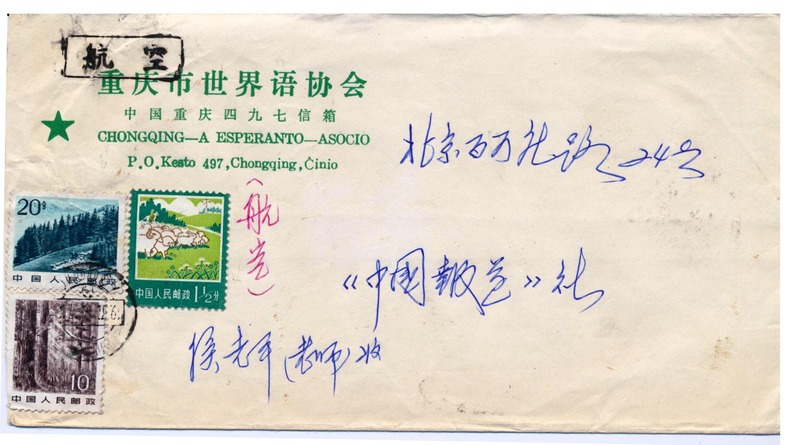 航空
重庆市世界语协会
中国重庆四九七信箱
CHONGQING—A ESPERANTO—ASOCIO
P.O. Kesto 497, Chongqing, Ĉinio
北京百万庄路24号
(航空)
20分
中国人民邮政
中国人民邮政 1½分
10
中国人民邮政
《中国报道》社
侯老平(老师)收